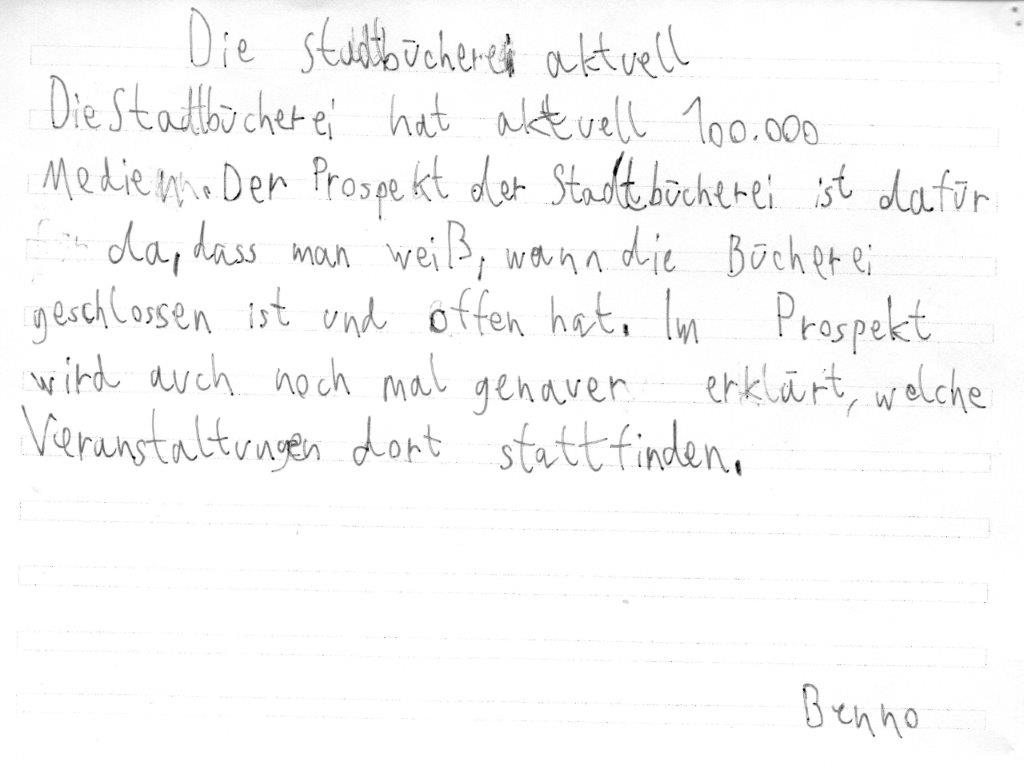 Die Stadtbücherei aktuell
Die Stadtbücherei hat aktuell 100.000
Medien. Der Prospekt der Stadtbücherei ist dafür
da, dass man weiß, wann die Bücherei
geschlossen ist und offen hat. Im Prospekt
wird auch noch mal genauer erklärt, welche
Veranstaltungen dort stattfinden.
Benno